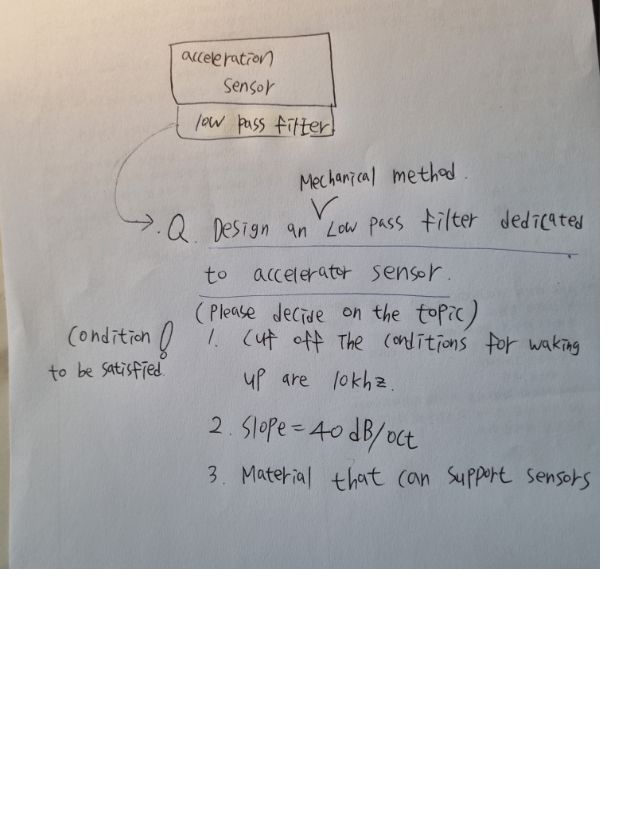 acceleration
sensor
low pass filter
Mechanical method.
Q. Design an Low pass filter dedicated
to accelerator sensor.
(Please decide on the topic)
Condition!
to be satisfied.
1. Cut off The conditions for waking
up are 10khz.
2. Slope = 40 dB/oct
3. Material that can support sensors